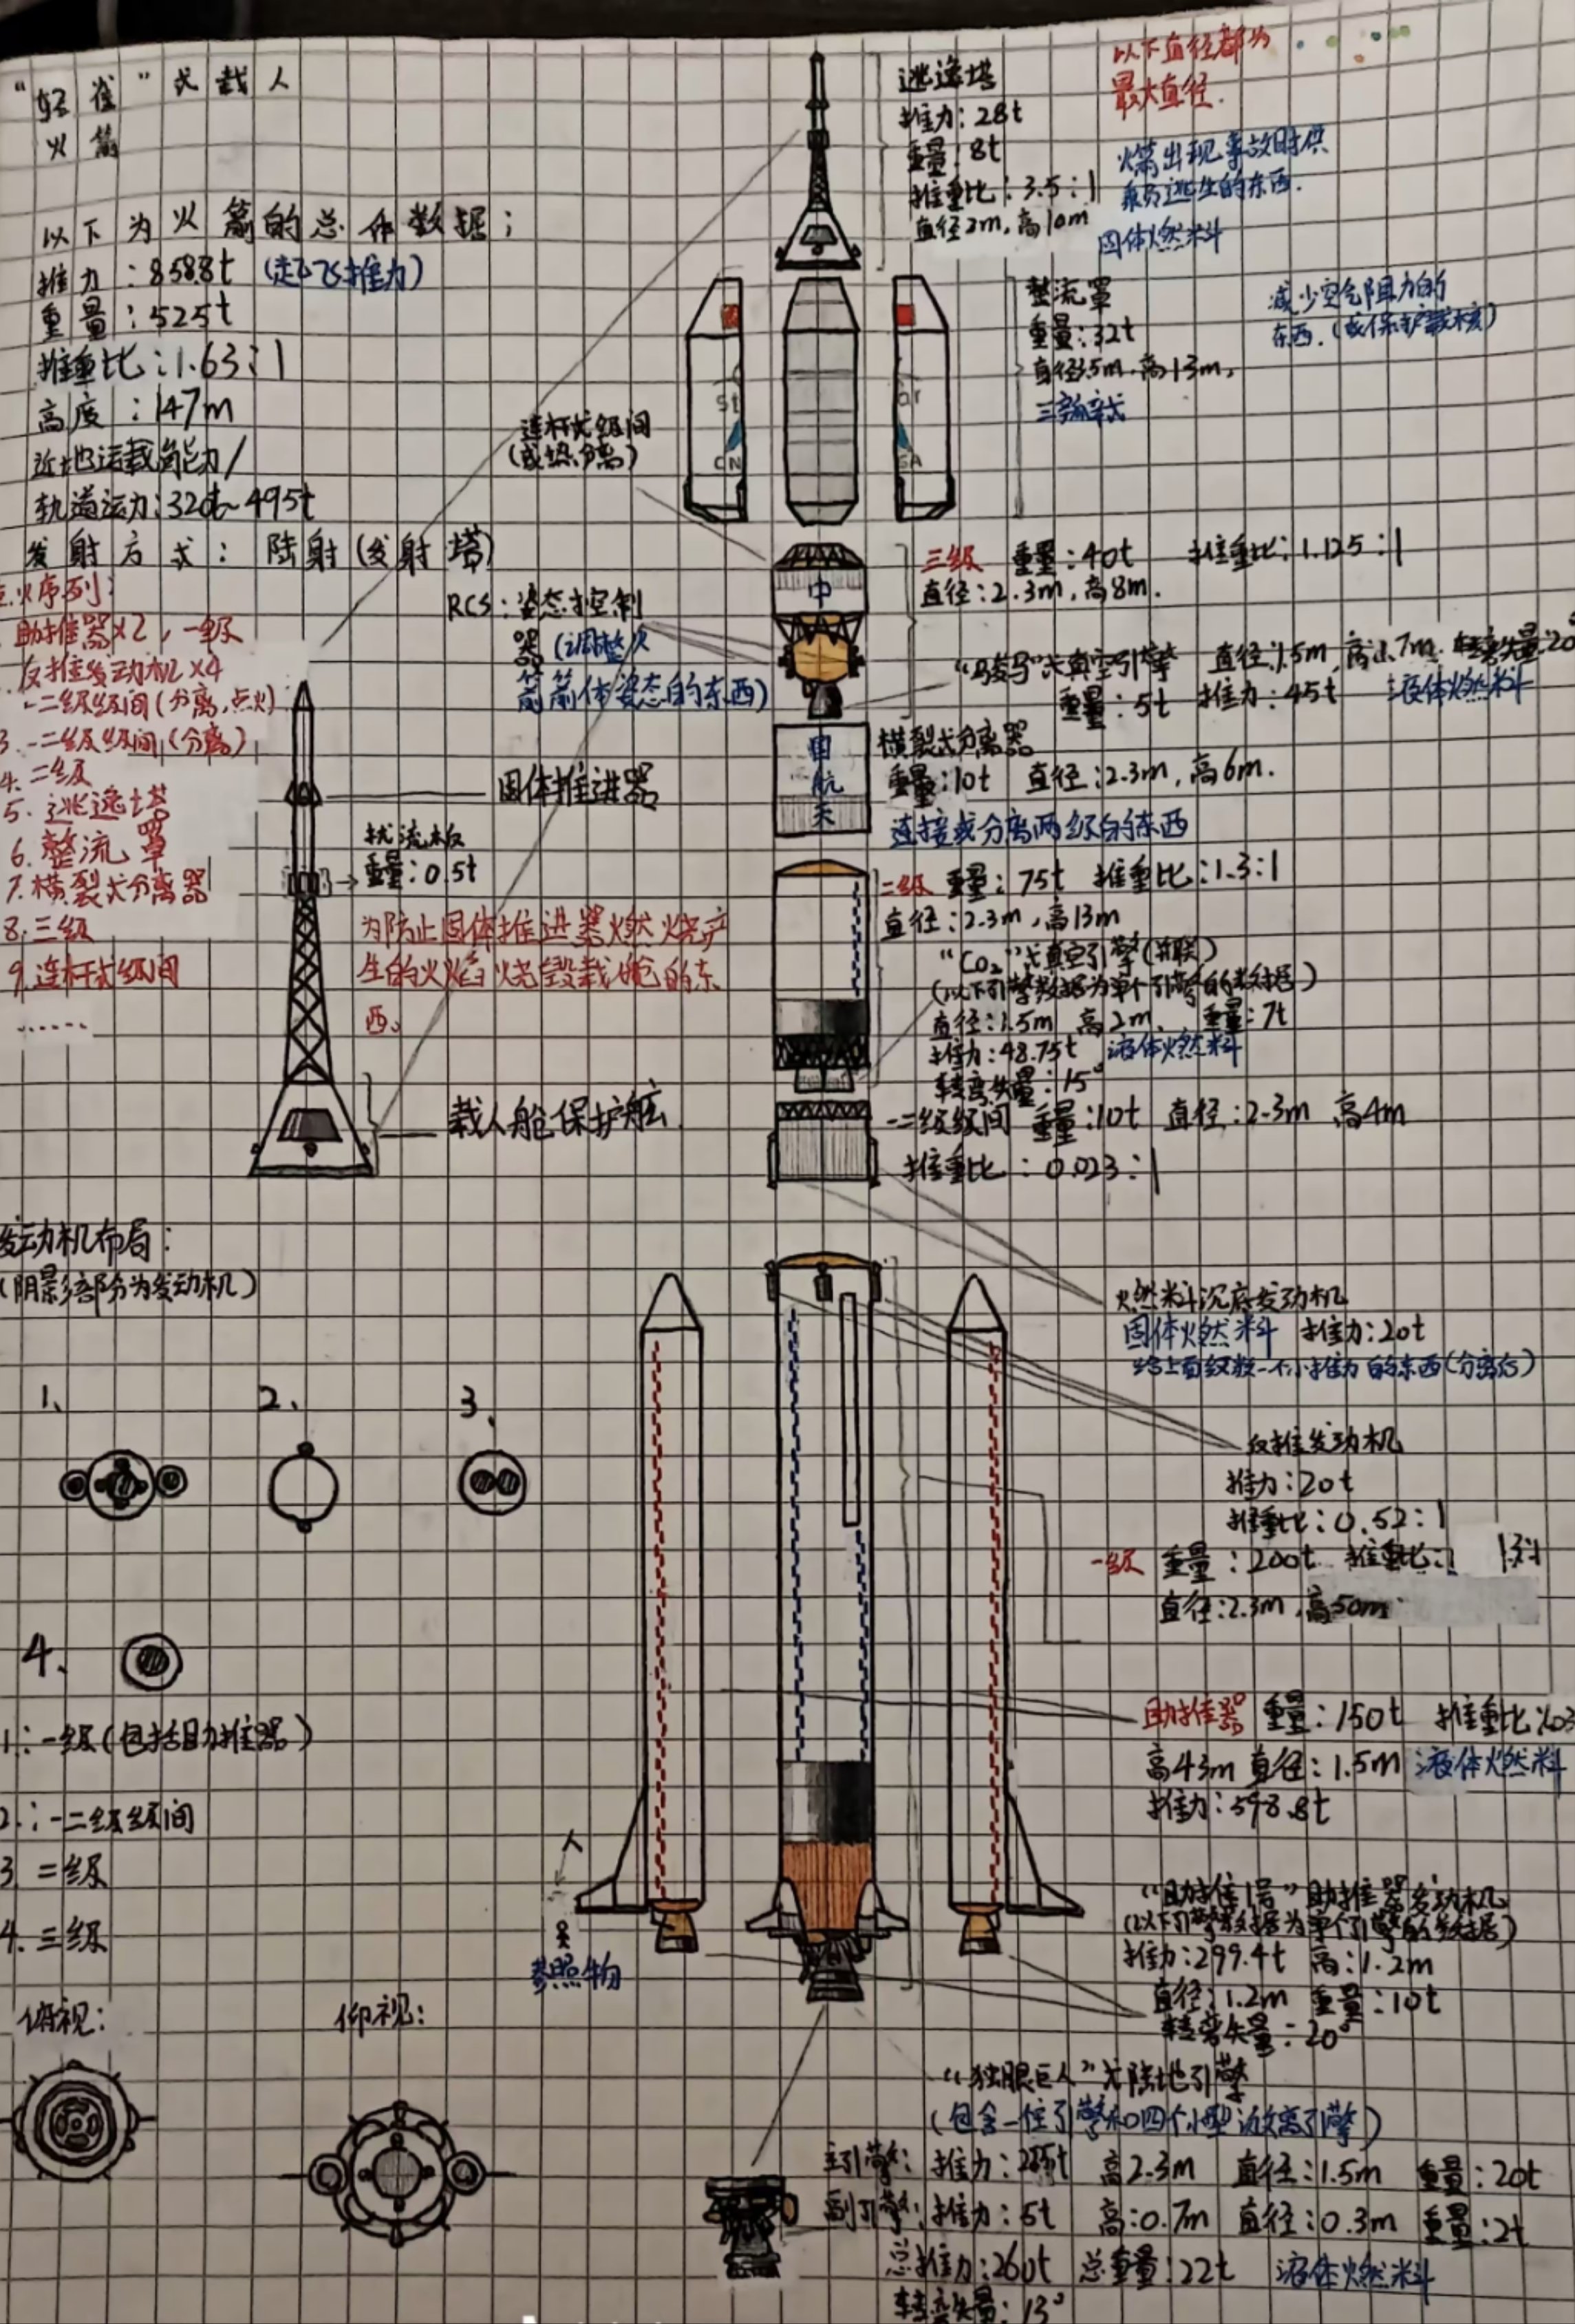 “轻雀”式载人
火箭
以下为火箭的总体数据：
推力：858.8t（起飞推力）
重量：525t
推重比：1.63：1
高度：147m
近地运载能力/
轨道运力：320t~495t
发射方式：陆射（发射塔）
点火序列：
助推器×2，一级
反推发动机×4
一二级级间（分离，点火）
3.一二级级间（分离）
4.二级
5.逃逸塔
6.整流罩
7.横裂式分离器
8.三级
9.连杆式级间
……
逃逸塔
推力：28t
重量：8t
推重比：3.5：1
直径2m，高10m
以下直径都为
最大直径．
火箭出现事故时供
乘员逃生的东西．
固体燃料
整流罩
重量：32t
直径3.5m，高13m，
减少空气阻力的
东西．（或保护载核）
St
ar
CN
SA
连杆式级间
（或热分离）
三级 重量：40t 推重比：1.125：1
直径：2.3m，高8m．
中
RCS：姿态控制
器（调整火
箭箭体姿态的东西）
“骏马”式真空引擎 直径：1.5m，高1.7m
重量：5t 推力：45t 液体燃料
国
航
天
横裂式分离器
重量：10t 直径：2.3m，高6m．
连接或分离两级的东西
固体推进器
扰流板
重量：0.5t
为防止固体推进器燃烧产
生的火焰烧毁载人舱的东
西。
载人舱保护舷
二级 重量：75t 推重比：1.3：1
直径：2.3m，高13m
“CO₂”式真空引擎（并联）
（以下引擎数据为单个引擎的数据）
直径：1.5m 高2m． 重量：7t
推力：48.75t 液体燃料
转弯矢量：15°
一二级级间 重量：10t 直径：2.3m 高4m
推重比：0.023：1
发动机布局：
（阴影部分为发动机）
1、
2、
3、
4、
1：一级（包括助推器）
2：一二级级间
3.二级
4.三级
燃料沉底发动机
固体燃料 推力：20t
给上面级一个小推力的东西（分离后）
反推发动机
推力：20t
推重比：0.52：1
一级 重量：200t 推重比：1.3：1
直径：2.3m，高50m
助推器 重量：150t 推重比
高43m 直径：1.5m 液体燃料
推力：598.8t
人
参照物
“助推1号”助推器发动机
（以下引擎数据为单个引擎的数据）
推力：299.4t 高：1.2m
直径：1.2m 重量：10t
转弯矢量：20°
俯视：
仰视：
“独眼巨人”式陆地引擎
（包含一主引擎和四个小型游离引擎）
主引擎：推力：255t 高2.3m 直径：1.5m 重量：20t
副引擎：推力：5t 高：0.7m 直径：0.3m 重量：2t
总推力：260t 总重量：22t 液体燃料
转弯矢量：13°